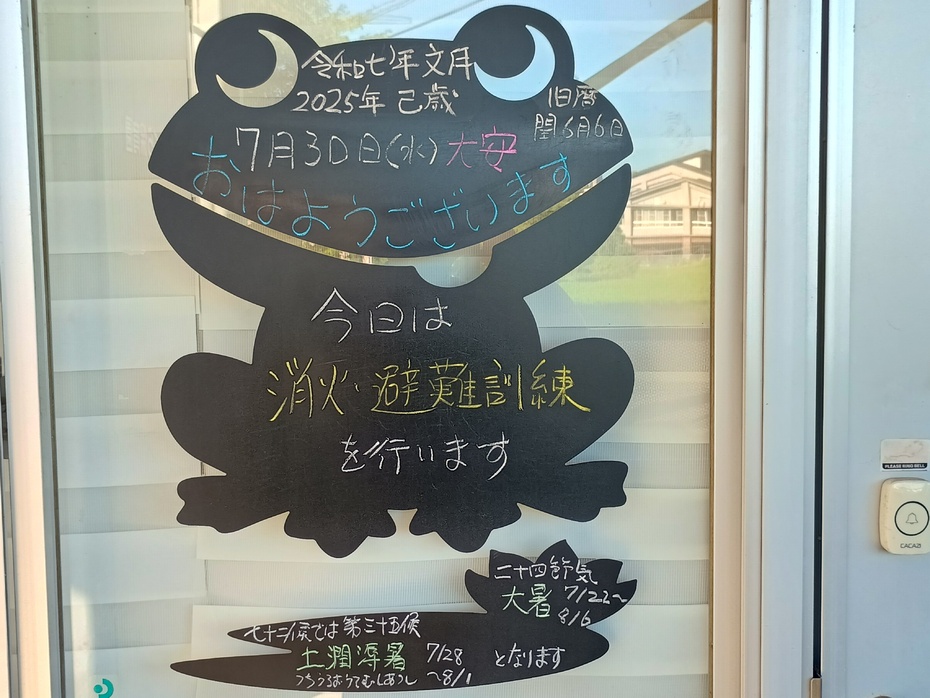 令和七年文月
2025年 己歳
旧暦
閏6月6日
7月30日(水)大安
おはようございます
今日は
消火・避難訓練
を行います
二十四節気
大暑 7/22~
8/6
七十二候では 第三十五候
土潤溽暑 7/28
~8/1
となります
つちうるおうてむしあつし
PLEASE RING BELL
CACAZI